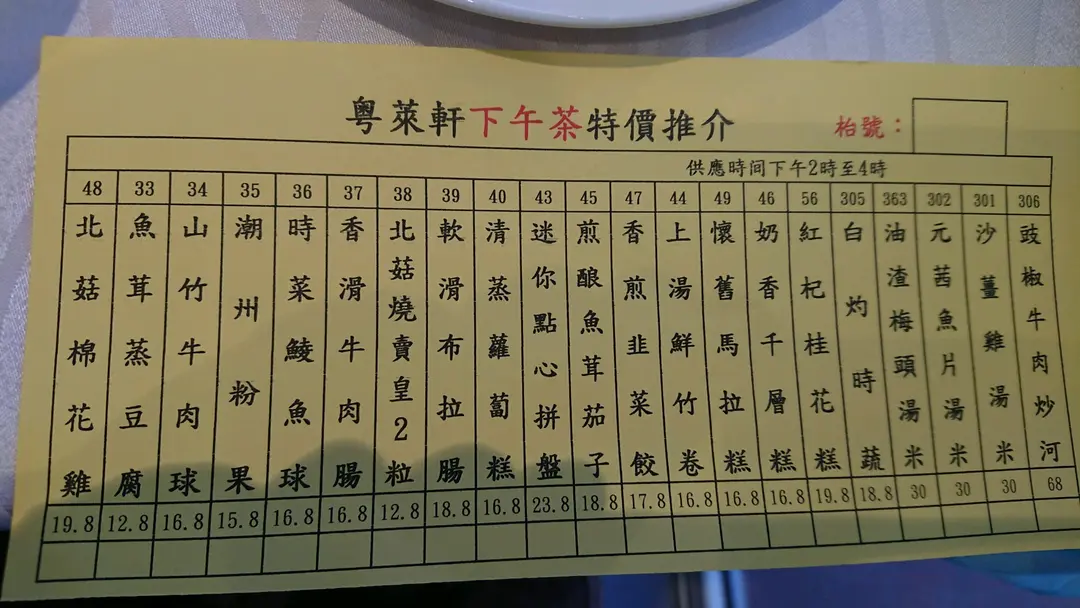 粵萊軒下午茶特價推介
枱號：
供應時间下午2時至4時
48 北菇棉花雞 19.8
33 魚茸蒸豆腐 12.8
34 山竹牛肉球 16.8
35 潮州粉果 15.8
36 時菜鯪魚球 16.8
37 香滑牛肉腸 16.8
38 北菇燒賣皇2粒 12.8
39 軟滑布拉腸 18.8
40 清蒸蘿蔔糕 16.8
43 迷你點心拼盤 23.8
45 煎酿魚茸茄子 18.8
47 香煎韭菜餃 17.8
44 上湯鮮竹卷 16.8
49 懷舊馬拉糕 16.8
46 奶香千層糕 16.8
56 紅杞桂花糕 19.8
305 白灼時蔬 18.8
363 油渣梅頭湯米 30
302 元茜魚片湯米 30
301 沙薑雞湯米 30
306 豉椒牛肉炒河 68